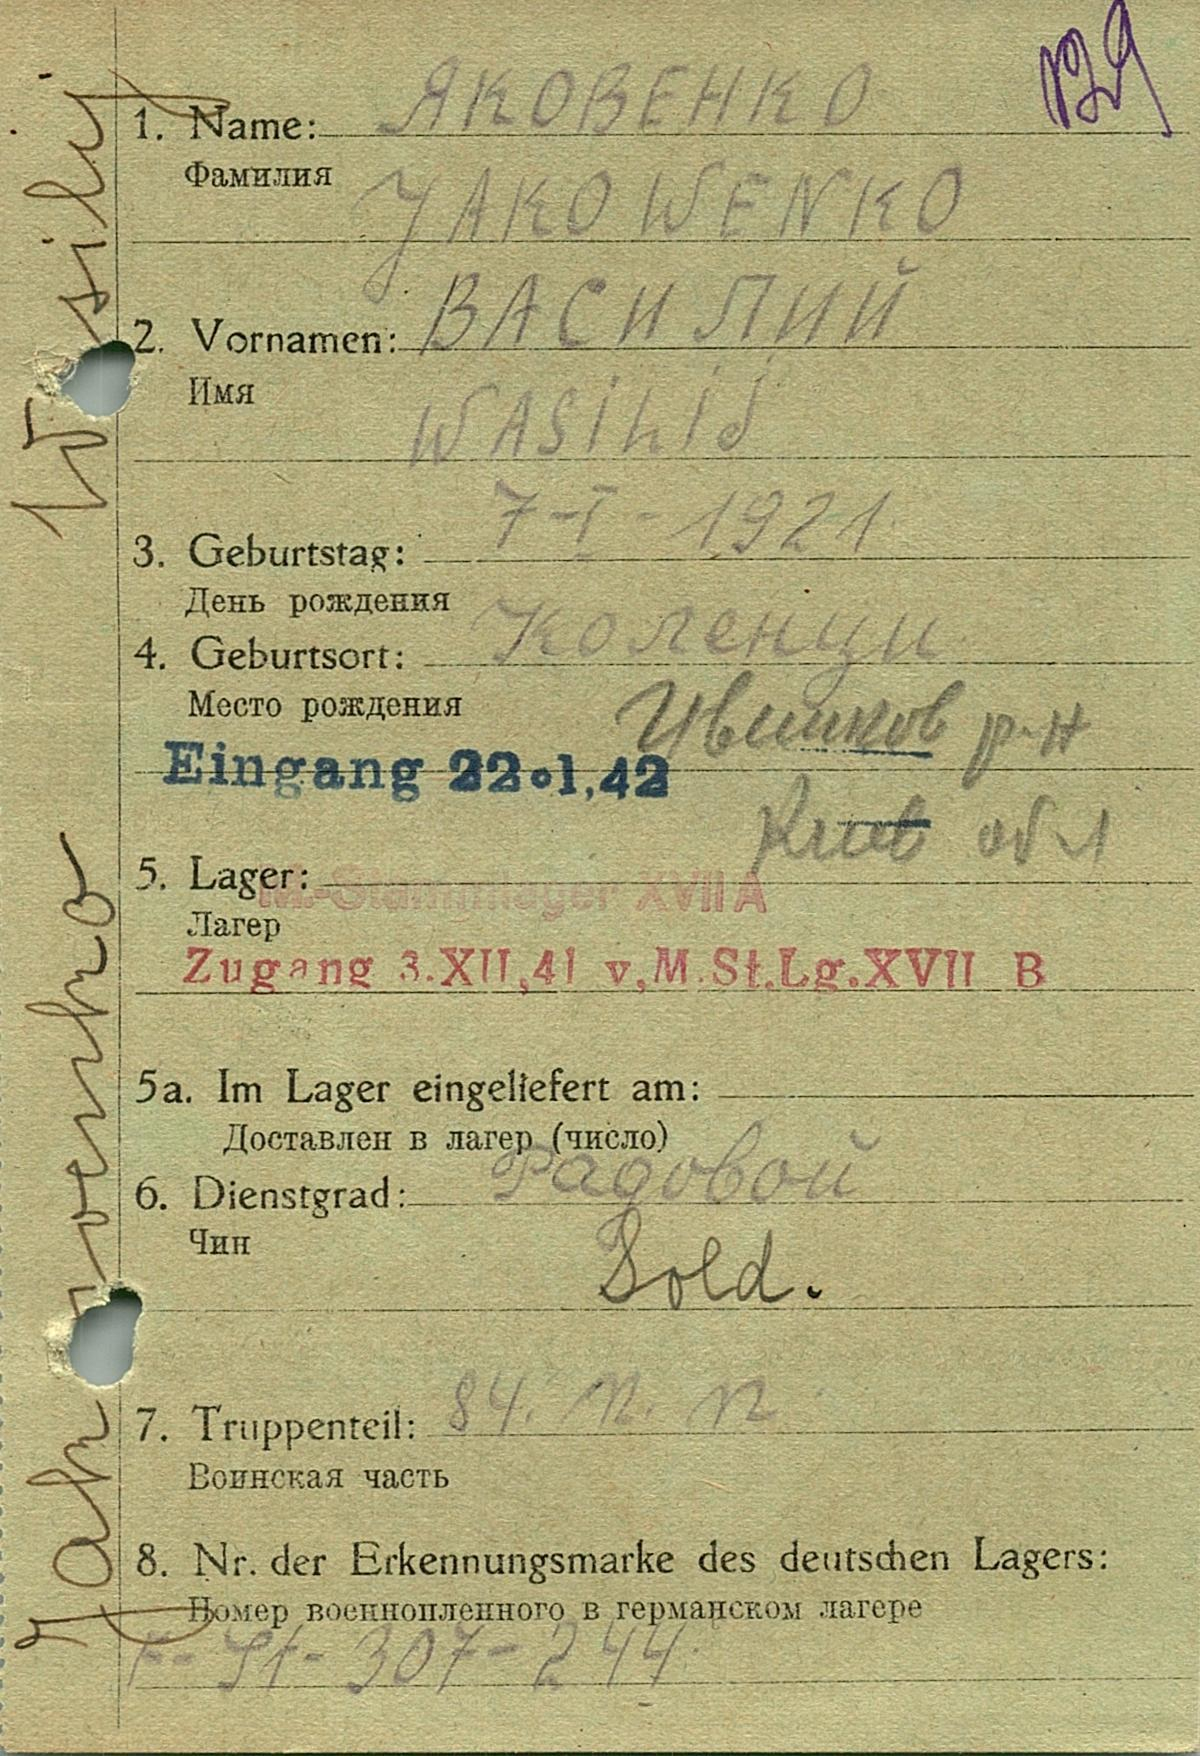 1. Name: ЯКОВЕНКО
Фамилия
JAKOWENKO
2. Vornamen: ВАСИЛИЙ
Имя
WASILIJ
3. Geburtstag: 7-I-1921
День рождения
4. Geburtsort: Коленци
Место рождения
р-н
Eingang 22.1.42
Киев обл
5. Lager: M.-Stammlager XVII A
Лагер
Zugang 3.XII,41 v,M.St.Lg.XVII B
5a. Im Lager eingeliefert am:
Доставлен в лагер (число)
6. Dienstgrad: Радовой
Чин
Sold.
7. Truppenteil: 84. п. п
Воинская часть
8. Nr. der Erkennungsmarke des deutschen Lagers:
Номер военнопленного в германском лагере
F-St-307-244
Jakowenko Wasilij